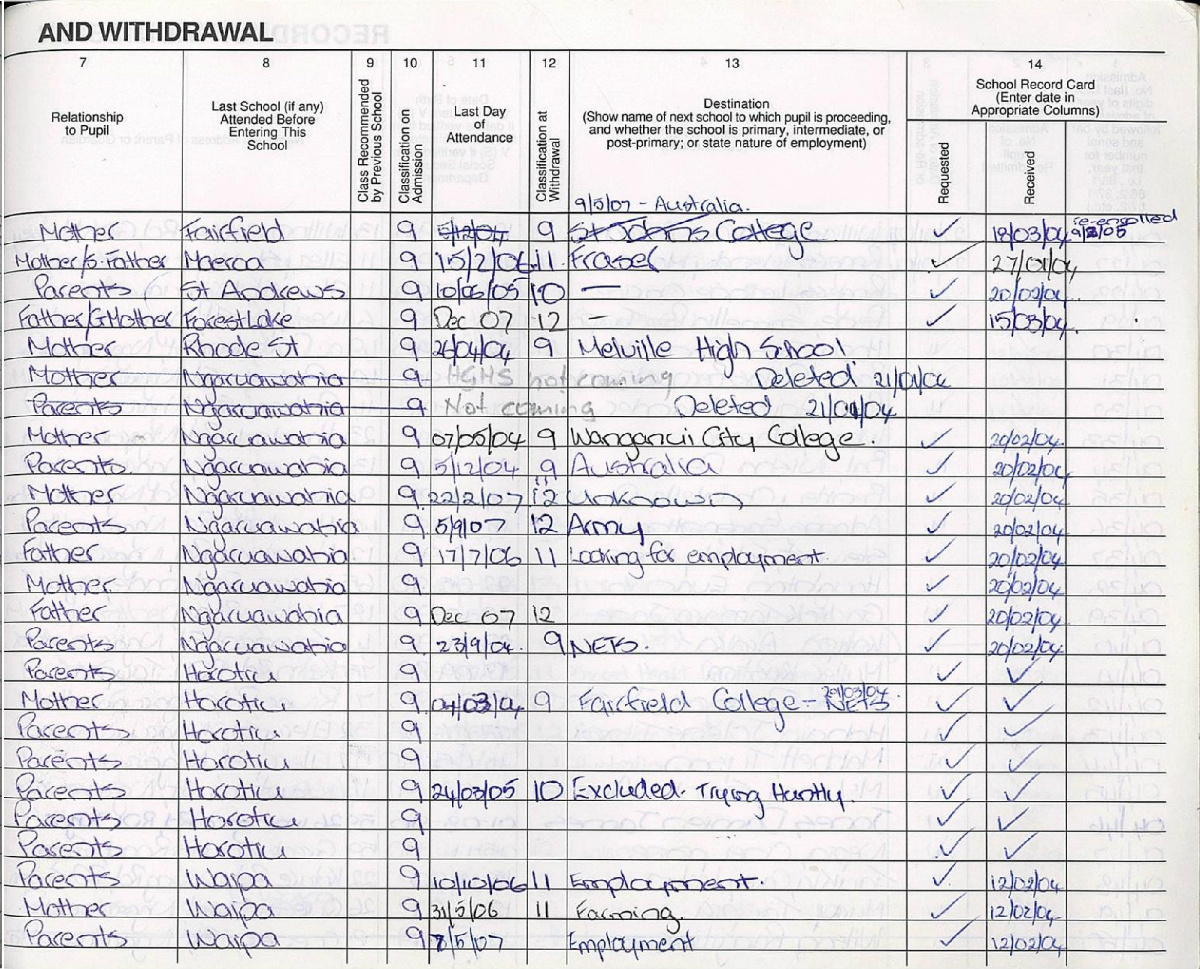 AND WITHDRAWAL
7 8 9 10 11 12 13 14
Relationship to Pupil
Last School (if any) Attended Before Entering This School
Class Recommended by Previous School
Classification on Admission
Last Day of Attendance
Classification at Withdrawal
Destination
(Show name of next school to which pupil is proceeding, and whether the school is primary, intermediate, or post-primary; or state nature of employment)
School Record Card
(Enter date in Appropriate Columns)
Requested
Received
9/5/07 - Australia.
Mother Fairfield 9 5/12/04 9 College ✓ 18/03/04 re-enrolled 9/2/05
Mother/S.Father Maeroa 9 15/2/06 11. Fraser ✓ 27/01/04
Parents St Andrews 9 10/06/05 10 — ✓ 20/02/04
Father/GMother Forest Lake 9 Dec 07 12 — ✓ 15/03/04
Mother Rhode St 9 26/04/04 9 Melville High School.
Mother Ngaruawahia 9 HGHS not coming Deleted 21/01/04
Parents Ngaruawahia 9 Not coming Deleted 21/01/04
Mother Ngaruawahia 9 07/05/04 9 Wanganui City College. ✓ 20/02/04
Parents Ngaruawahia 9 5/12/04 9 Australia ✓ 20/02/04
Mother Ngaruawahia 9 22/2/07 12 Unknown ✓ 20/02/04
Parents Ngaruawahia 9 5/9/07 12 Army ✓ 20/02/04
Father Ngaruawahia 9 17/7/06 11 Looking for employment. ✓ 20/02/04
Mother Ngaruawahia 9 ✓ 20/02/04
Father Ngaruawahia 9 Dec 07 12 ✓ 20/02/04
Parents Ngaruawahia 9 23/9/04. 9 NETS. ✓ 20/02/04
Parents Horotiu 9 ✓ ✓
Mother Horotiu 9 04/03/04 9 Fairfield College - NETS 29/03/04. ✓ ✓
Parents Horotiu 9 ✓ ✓
Parents Horotiu 9 ✓ ✓
Parents Horotiu 9 24/03/05 10 Excluded. Trying Huntly. ✓ ✓
Parents Horotiu 9 ✓ ✓
Parents Horotiu 9 ✓ ✓
Parents Waipa 9 10/10/06 11 Employment. ✓ 12/02/04
Mother Waipa 9 31/5/06 11 Farming. ✓ 12/02/04
Parents Waipa 9 8/5/07 Employment ✓ 12/02/04